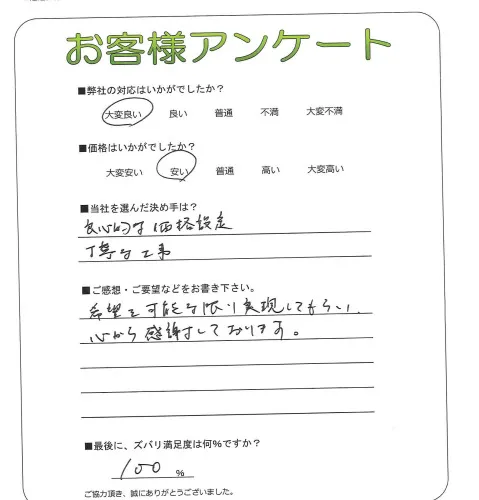 お客様アンケート
■弊社の対応はいかがでしたか？
大変良い 良い 普通 不満 大変不満
■価格はいかがでしたか？
大変安い 安い 普通 高い 大変高い
■当社を選んだ決め手は？
良心的な価格設定
丁寧な工事
■ご感想・ご要望などをお書き下さい。
希望を可能な限り実現してもらい、
心から感謝しております。
■最後に、ズバリ満足度は何％ですか？
100 ％
ご協力頂き、誠にありがとうございました。